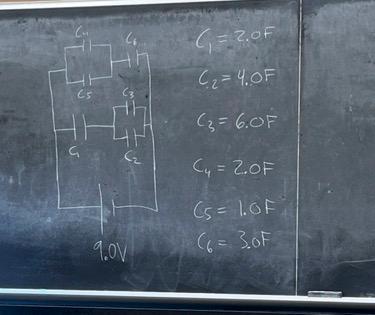 C4
C6
C5
C3
C1
C2
9.0V
C1 = 2.0F
C2 = 4.0F
C3 = 6.0F
C4 = 2.0F
C5 = 1.0F
C6 = 3.0F